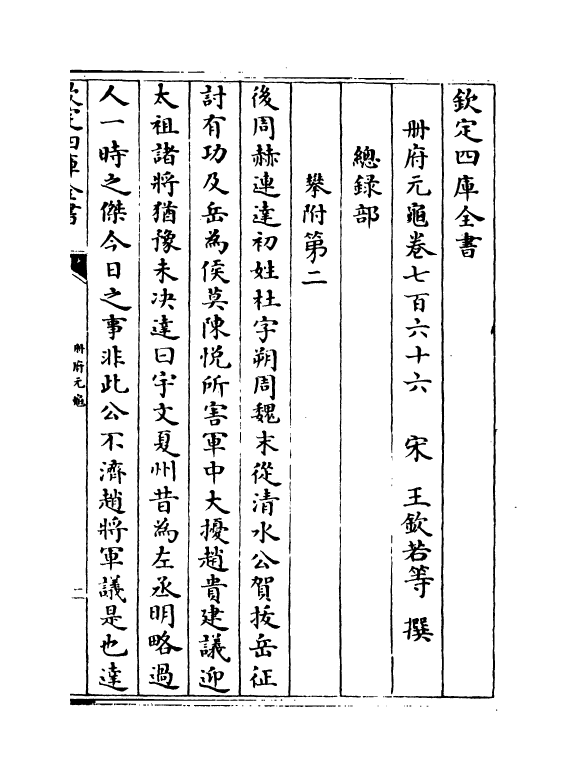 欽定四庫全書
冊府元龜卷七百六十六　宋　王欽若等　撰
總録部
攀附第二
後周赫連達初姓杜字朔周魏末從清水公賀拔岳征
討有功及岳為侯莫陳悦所害軍中大擾趙貴建議迎
太祖諸將猶豫未决達曰宇文夏州昔為左丞明略過
人一時之傑今日之事非此公不濟趙將軍議是也達
欽定四庫全書
冊府元龜
二